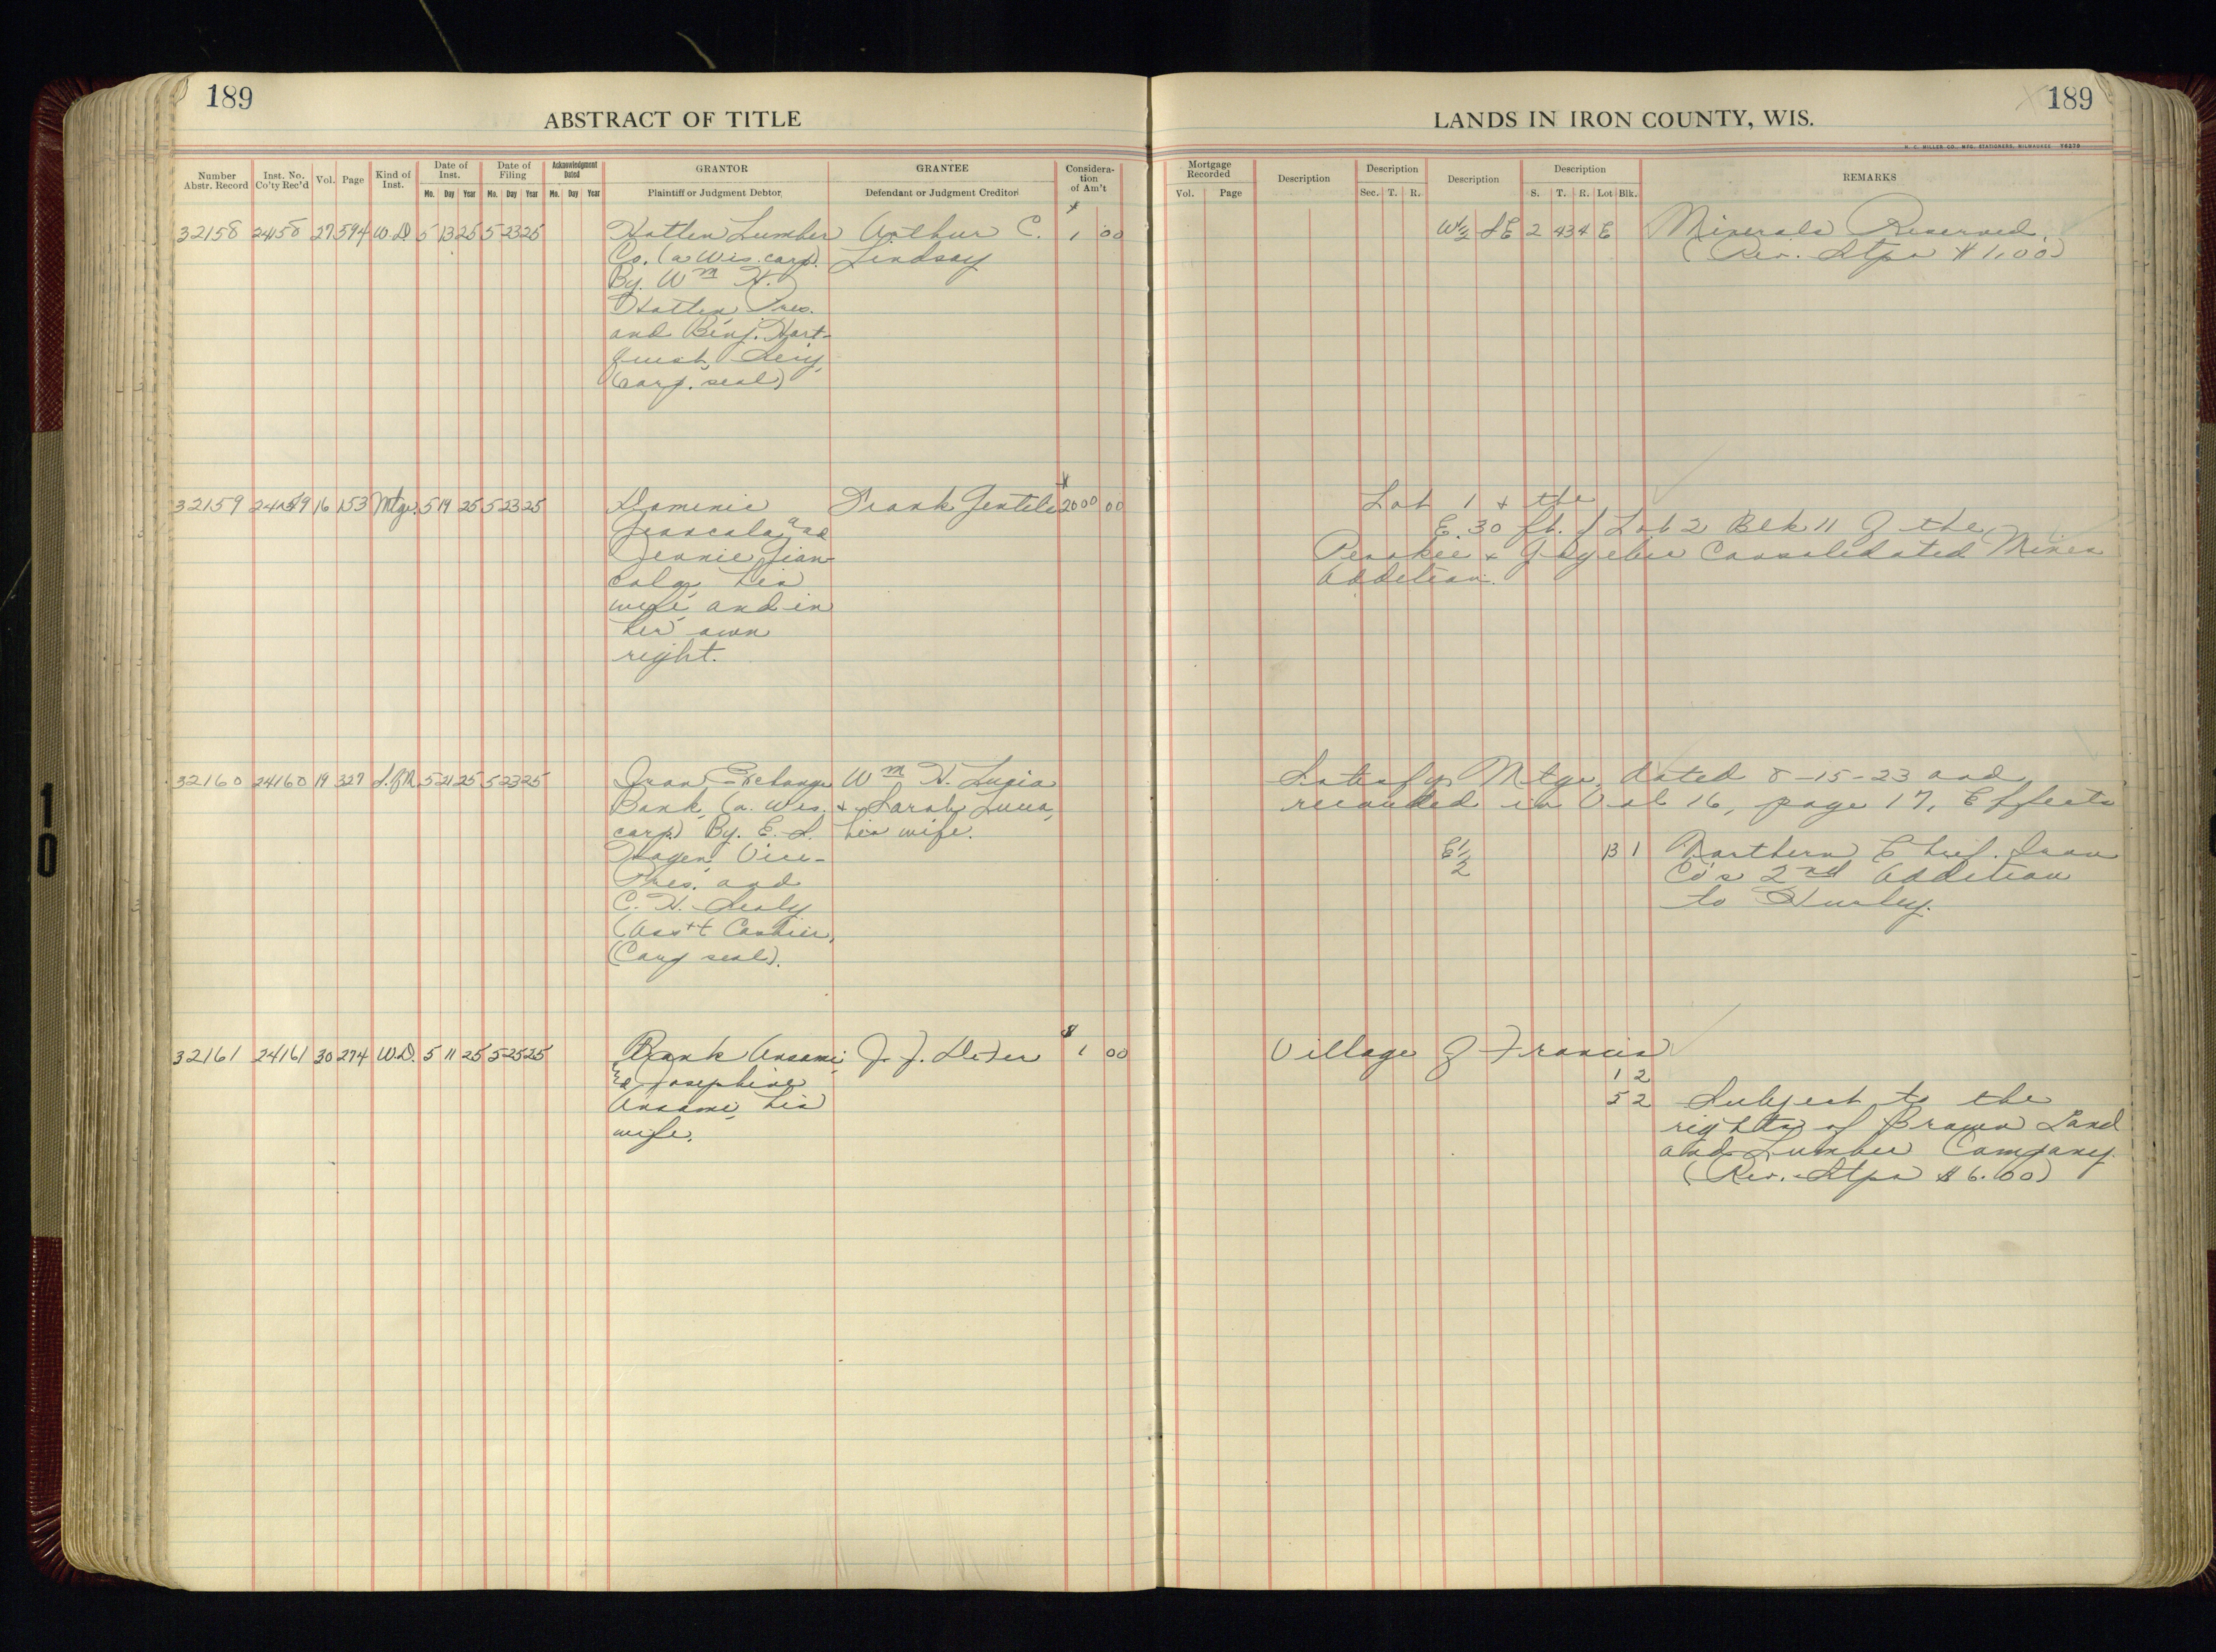 189
ABSTRACT OF TITLE
Number Abstr. Record
Inst. No. Co'ty Rec'd
Vol.
Page
Kind of Inst.
Date of Inst.
Mo. Day Year
Date of Filing
Mo. Day Year
Acknowledgment Dated
Mo. Day Year
GRANTOR
Plaintiff or Judgment Debtor
GRANTEE
Defendant or Judgment Creditor
Considera-
tion
of Am't
32158 24158 27 594 W.D. 5 13 25 5 23 25 Hatten Lumber Arthur C. $ 1 00
Co. (a Wis. corp). Lindsay
By. Wm H.
Hatten, Pres.
and Benj. Hart-
quest, Secy,
(corp. seal)
32159 24159 16 153 Mtge. 5 19 25 5 23 25 Dominic Frank Gentile $ 2000 00
and
Jennie Gian-
cola, his
wife, and in
her own
right.
32160 24160 19 327 5 21 25 5 23 25 Iron Exchange Wm H.
Bank, (a. Wis. & Sarah
corp.) By. E. S. his wife.
Hagen, Vice-
Pres. and
C. H.
(Ass't Cashier,
(Corp seal).
32161 24161 30 274 W.D. 5 11 25 5 25 25 Frank Ansami J. J. $ 1 00
& Josephine
Ansami, his
wife.
189
LANDS IN IRON COUNTY, WIS.
H. C. MILLER CO., MFG. STATIONERS, MILWAUKEE
Mortgage Recorded
Vol. Page
Description
Description
Sec. T. R.
Description
Description
S. T. R. Lot Blk.
REMARKS
W½ SE 2 43 4 E Minerals Reserved.
(Rev. Stps $1.00)
Lot 1 & the
E. 30 ft. of Lot 2 Blk 11 of the
Penokee & Gogebic Consolidated Mines
Addition.
Satisfys Mtge, dated 8-15-23 and
recorded in Vol 16, page 17, Effects
E½ 13 1 Northern Chief Iron
Co's 2nd Addition
to Hurley.
Village of Francis
1 2
5 2 Subject to the
rights of Brown Land
and Lumber Company.
(Rev. Stps $6.00)
10